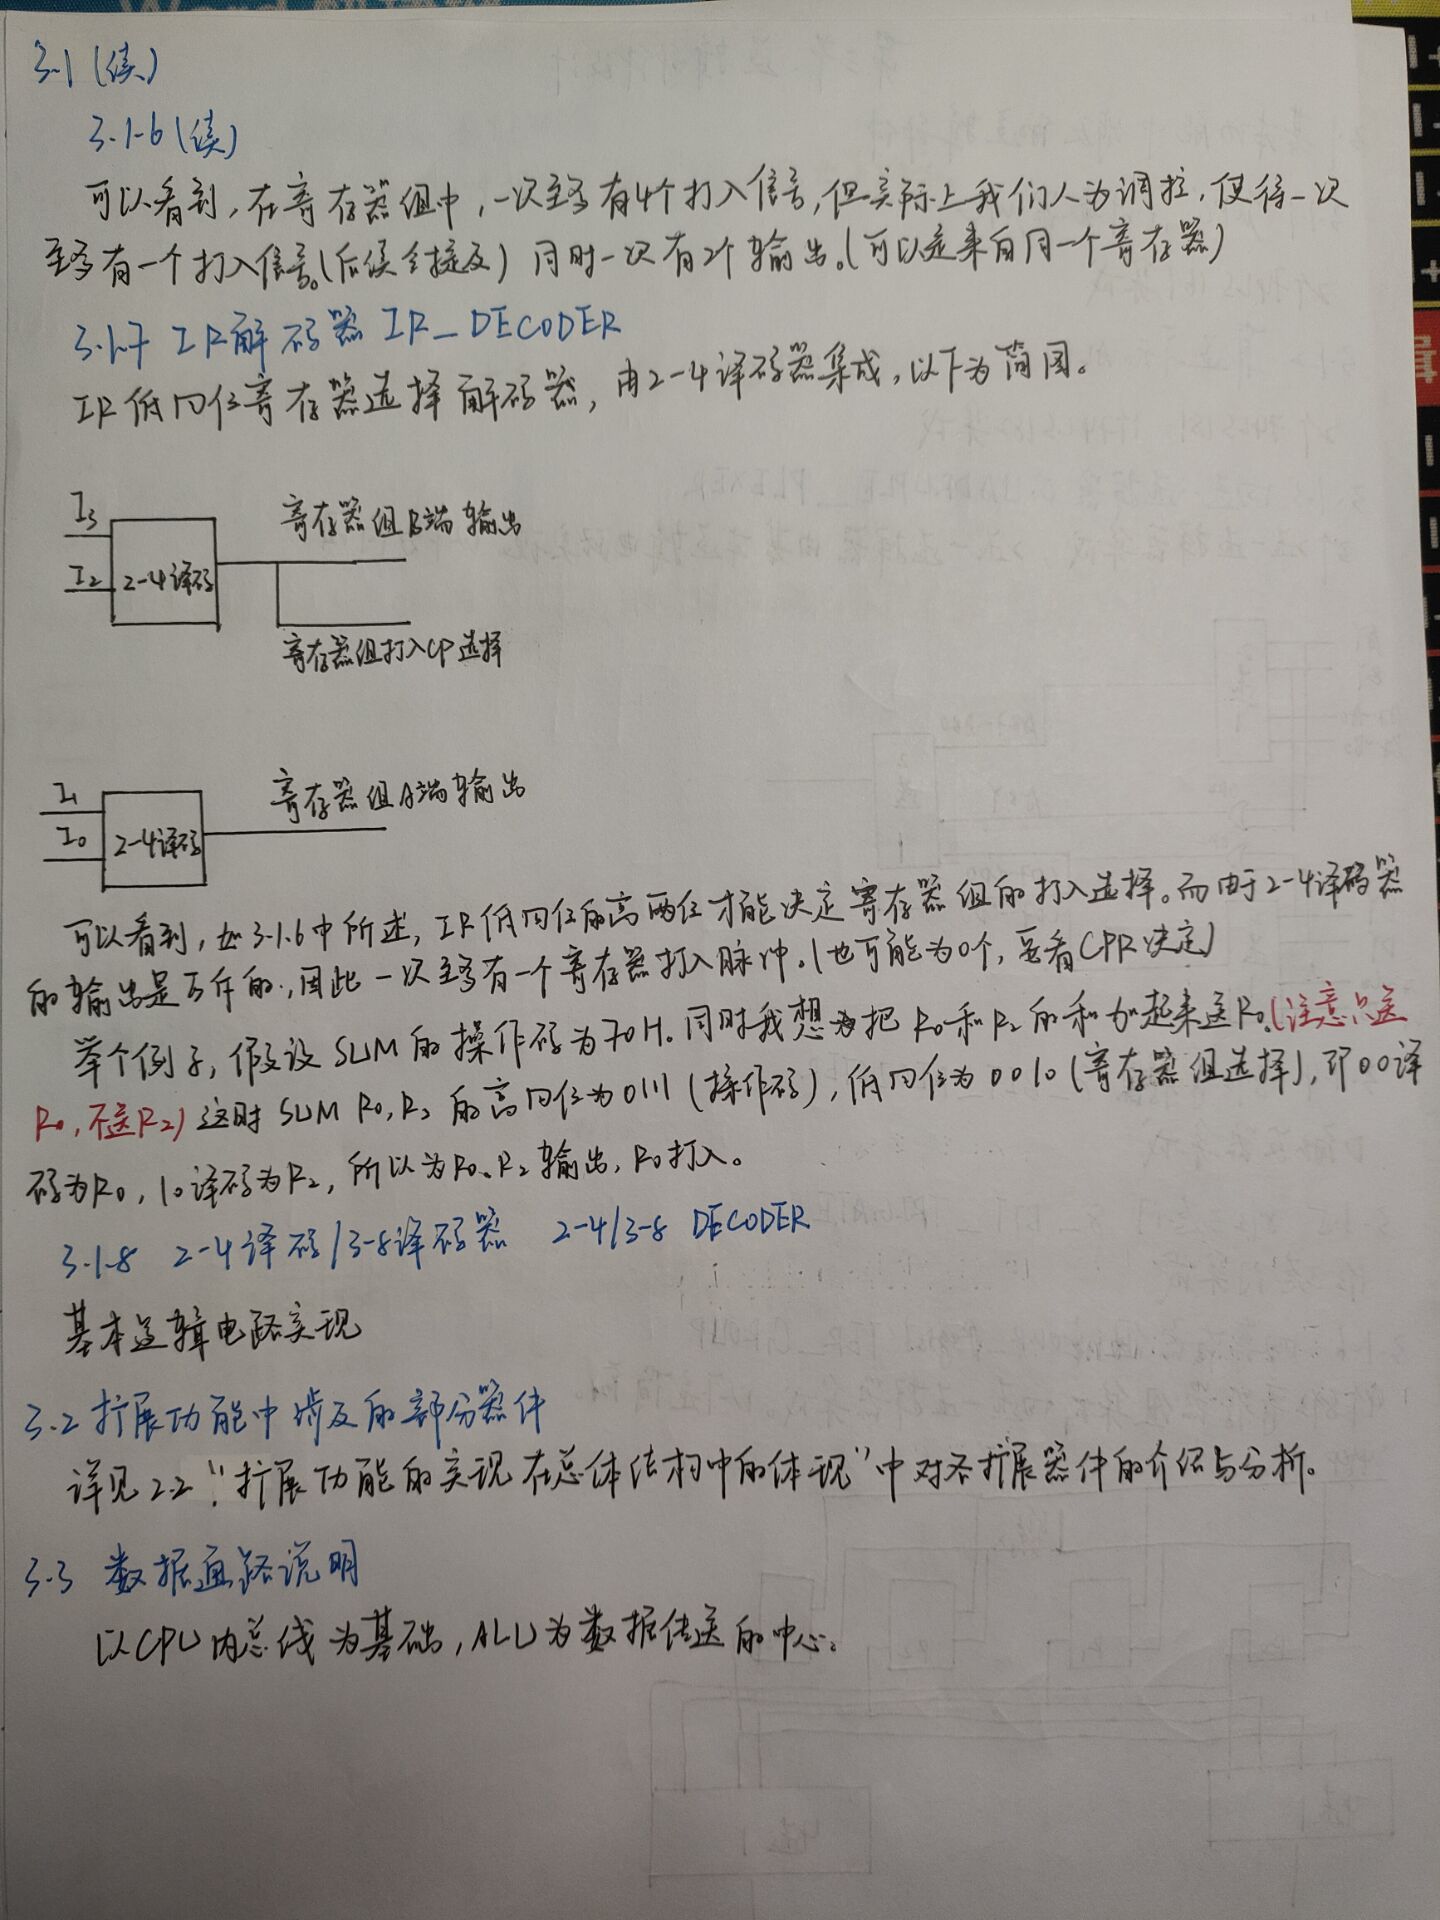 3.1(续)
3.1.6(续)
可以看到,在寄存器组中,一次至多有4个打入信号,但实际上我们人为调控,使得一次
至多有一个打入信号。(后续会提及) 同时一次有2个输出。(可以是来自同一个寄存器)
3.1.7 IR解码器 IR_DECODER
IR低四位寄存器选择解码器,由2-4译码器集成,以下为简图。
I3
寄存器组B端输出
I2
2-4译码
寄存器组打入CP选择
I1
寄存器组A端输出
I0
2-4译码
可以看到,如3.1.6中所述,IR低四位的高两位才能决定寄存器组的打入选择。而由于2-4译码器
的输出是互斥的,因此一次至多有一个寄存器打入脉冲。(也可能为0个,要看CPR决定)
举个例子,假设SUM的操作码为70H。同时我想把R0和R2的和加起来送R0。(注意只送
R0,不送R2) 这时SUM R0,R2 的高四位为0111(操作码),低四位为0010(寄存器组选择),即00译
码为R0,10译码为R2,所以为R0、R2输出,R0打入。
3.1.8 2-4译码/3-8译码器 2-4/3-8 DECODER
基本逻辑电路实现
3.2 扩展功能中涉及的部分器件
详见2.2“扩展功能的实现在总体结构中的体现”中对各扩展器件的介绍与分析。
3.3 数据通路说明
以CPU内总线为基础,ALU为数据传送的中心。